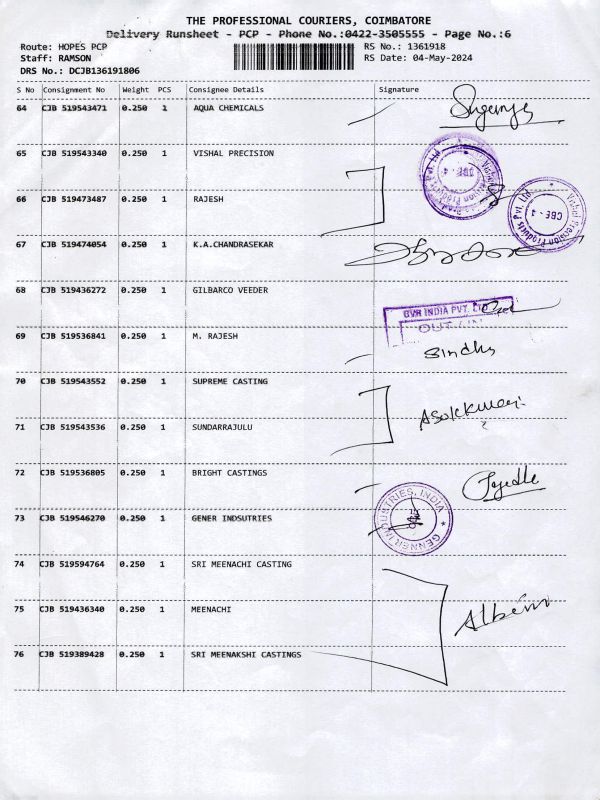 THE PROFESSIONAL COURIERS, COIMBATORE
Delivery Runsheet - PCP - Phone No.:0422-3505555 - Page No.:6
Route: HOPES PCP RS No.: 1361918
Staff: RAMSON RS Date: 04-May-2024
DRS No.: DCJB136191806
S No Consignment No Weight PCS Consignee Details Signature
64 CJB 519543471 0.250 1 AQUA CHEMICALS
65 CJB 519543340 0.250 1 VISHAL PRECISION
66 CJB 519473487 0.250 1 RAJESH
67 CJB 519474054 0.250 1 K.A.CHANDRASEKAR
68 CJB 519436272 0.250 1 GILBARCO VEEDER
GVR INDIA PVT. LTD
OUT / IN
69 CJB 519536841 0.250 1 M. RAJESH Sindhu
70 CJB 519543552 0.250 1 SUPREME CASTING
71 CJB 519543536 0.250 1 SUNDARRAJULU
72 CJB 519536805 0.250 1 BRIGHT CASTINGS
73 CJB 519546270 0.250 1 GENER INDSUTRIES
GENNER INDUSTRIES, INDIA
74 CJB 519594764 0.250 1 SRI MEENACHI CASTING
75 CJB 519436340 0.250 1 MEENACHI
76 CJB 519389428 0.250 1 SRI MEENAKSHI CASTINGS